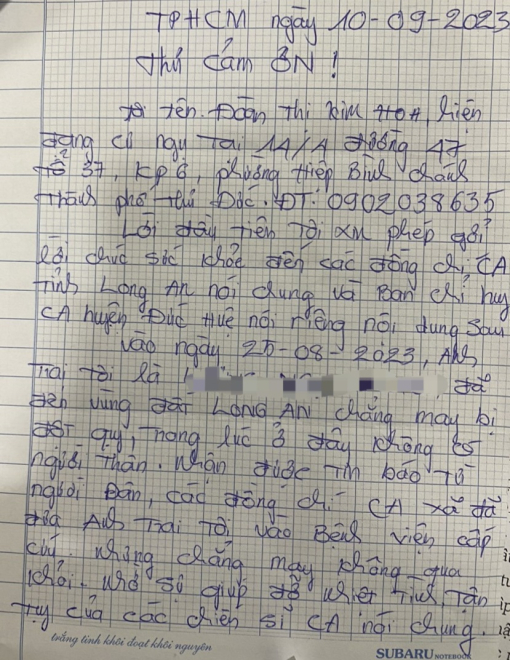 TPHCM ngày 10-09-2023
Thư Cám ƠN!
Tôi tên. Đoàn Thị Kim HOA, hiện
đang cư ngụ tại 14/A đường 47
tổ 37, KP6, phường Hiệp Bình chánh
thành phố thủ Đức. ĐT: 0902038635
Lời đầy tiên tôi xin phép gởi
lời chúc sức khỏe đến các đồng chí CA
tỉnh Long An nói chung và Ban chỉ huy
CA huyện Đức Huệ nói riêng nội dung sau
vào ngày 25-08-2023, Anh
Trai tôi là đã
đến vùng đất LONG AN chẳng may bị
đột quỵ, trong lúc ở đây không có
người thân. Nhận được tin báo từ
người Dân, các đồng chí CA xã đã
đưa Anh Trai Tôi vào Bệnh viện cấp
cứu. Nhưng chẳng may không qua
khỏi. Nhờ sự giúp đỡ nhiệt tình, Tận
tụy của các chiến sĩ CA nói chung.
trắng tinh khôi đoạt khôi nguyên
SUBARU NOTEBOOK